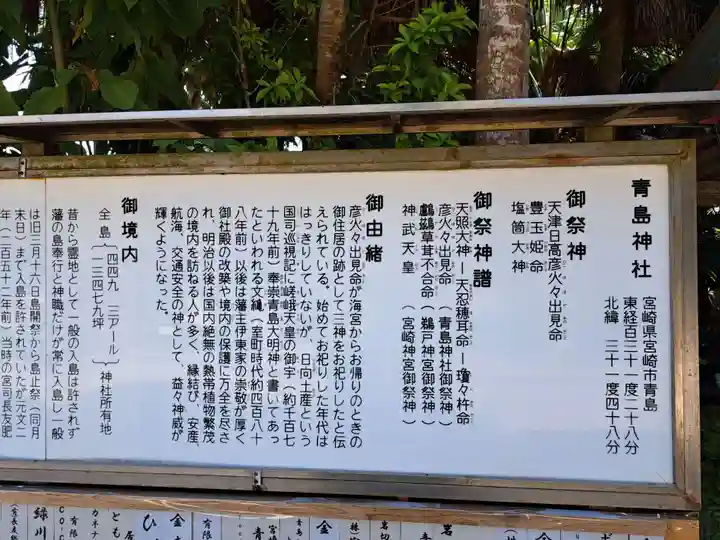 青島神社
宮崎県宮崎市青島
東経百三十一度二十八分
北緯　三十一度四十八分
御祭神
天津日高彦火々出見命
豊玉姫命
塩筒大神
御祭神譜
天照大神ー天忍穂耳命ー瓊々杵命
彦火々出見命（青島神社御祭神）
鸕鷀草葺不合命（鵜戸神宮御祭神）
神武天皇（宮崎神宮御祭神）
御由緒
彦火々出見命が海宮からお帰りのときの
御住居の跡として三神をお祀りしたと伝
えられている。始めてお祀りした年代は
はっきりしていないが、日向土産という
国司巡視記に嵯峨天皇の御宇（約千百七
十九年前）奉崇青島大明神と書いてあっ
たといわれる文縄（室町時代約四百八十
八年前）以後は藩主伊東家の崇敬が厚く
御社殿の改築や境内の保護に万全を尽さ
れ、明治以後は国内絶無の熱帯植物繁茂
の境内を訪ねる人が多く、縁結び、安産、
航海、交通安全の神として、益々神威が
輝くようになった。
御境内
全島
四四九　三アール
一三四七九坪
神社所有地
昔から霊地として一般の入島は許されず
藩の島奉行と神職だけが常に入島し一般
は旧三月十六日島開祭から島止祭（同月
末日）まで入島を許されていたが元文二
年（二百五十二年前）当時の宮司長友肥
緑川
有限
カネナ
とも
ひ
金
有限
青
宮崎
金